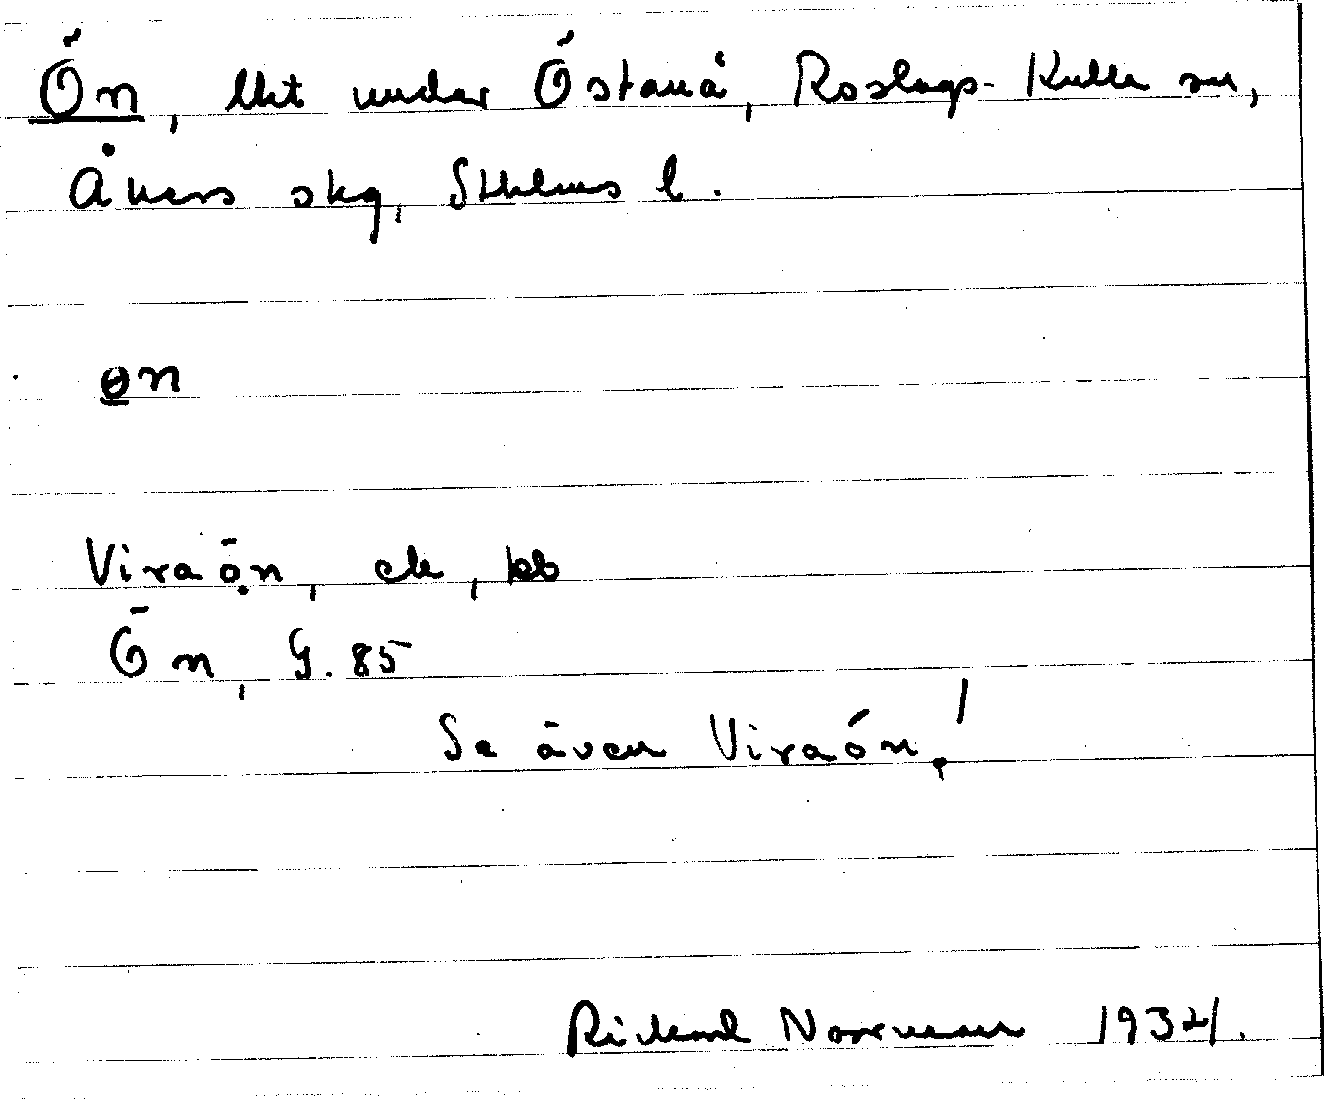 Ön, lht under Östanå, Roslags-Kulla sn,
Åkers skg, Sthlms l.
ɵn
Viraön, ek, kb
Ön, G. 85
Se även Viraön!
Rickard Norrman 1934.